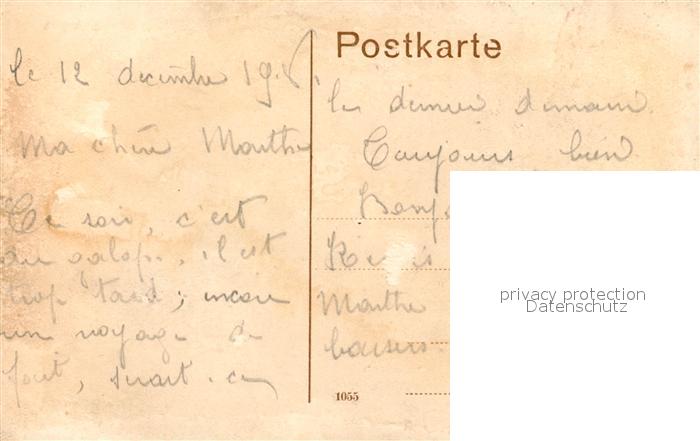 Postkarte
le 12 décembre 19
Ma chère Marthe
Ce soir, c'est
au galop, il est
trop tard; encore
un voyage de
fait, serait-ce
le dernier demain.
Toujours bien
Marthe
baisers.
1055
privacy protection
Datenschutz